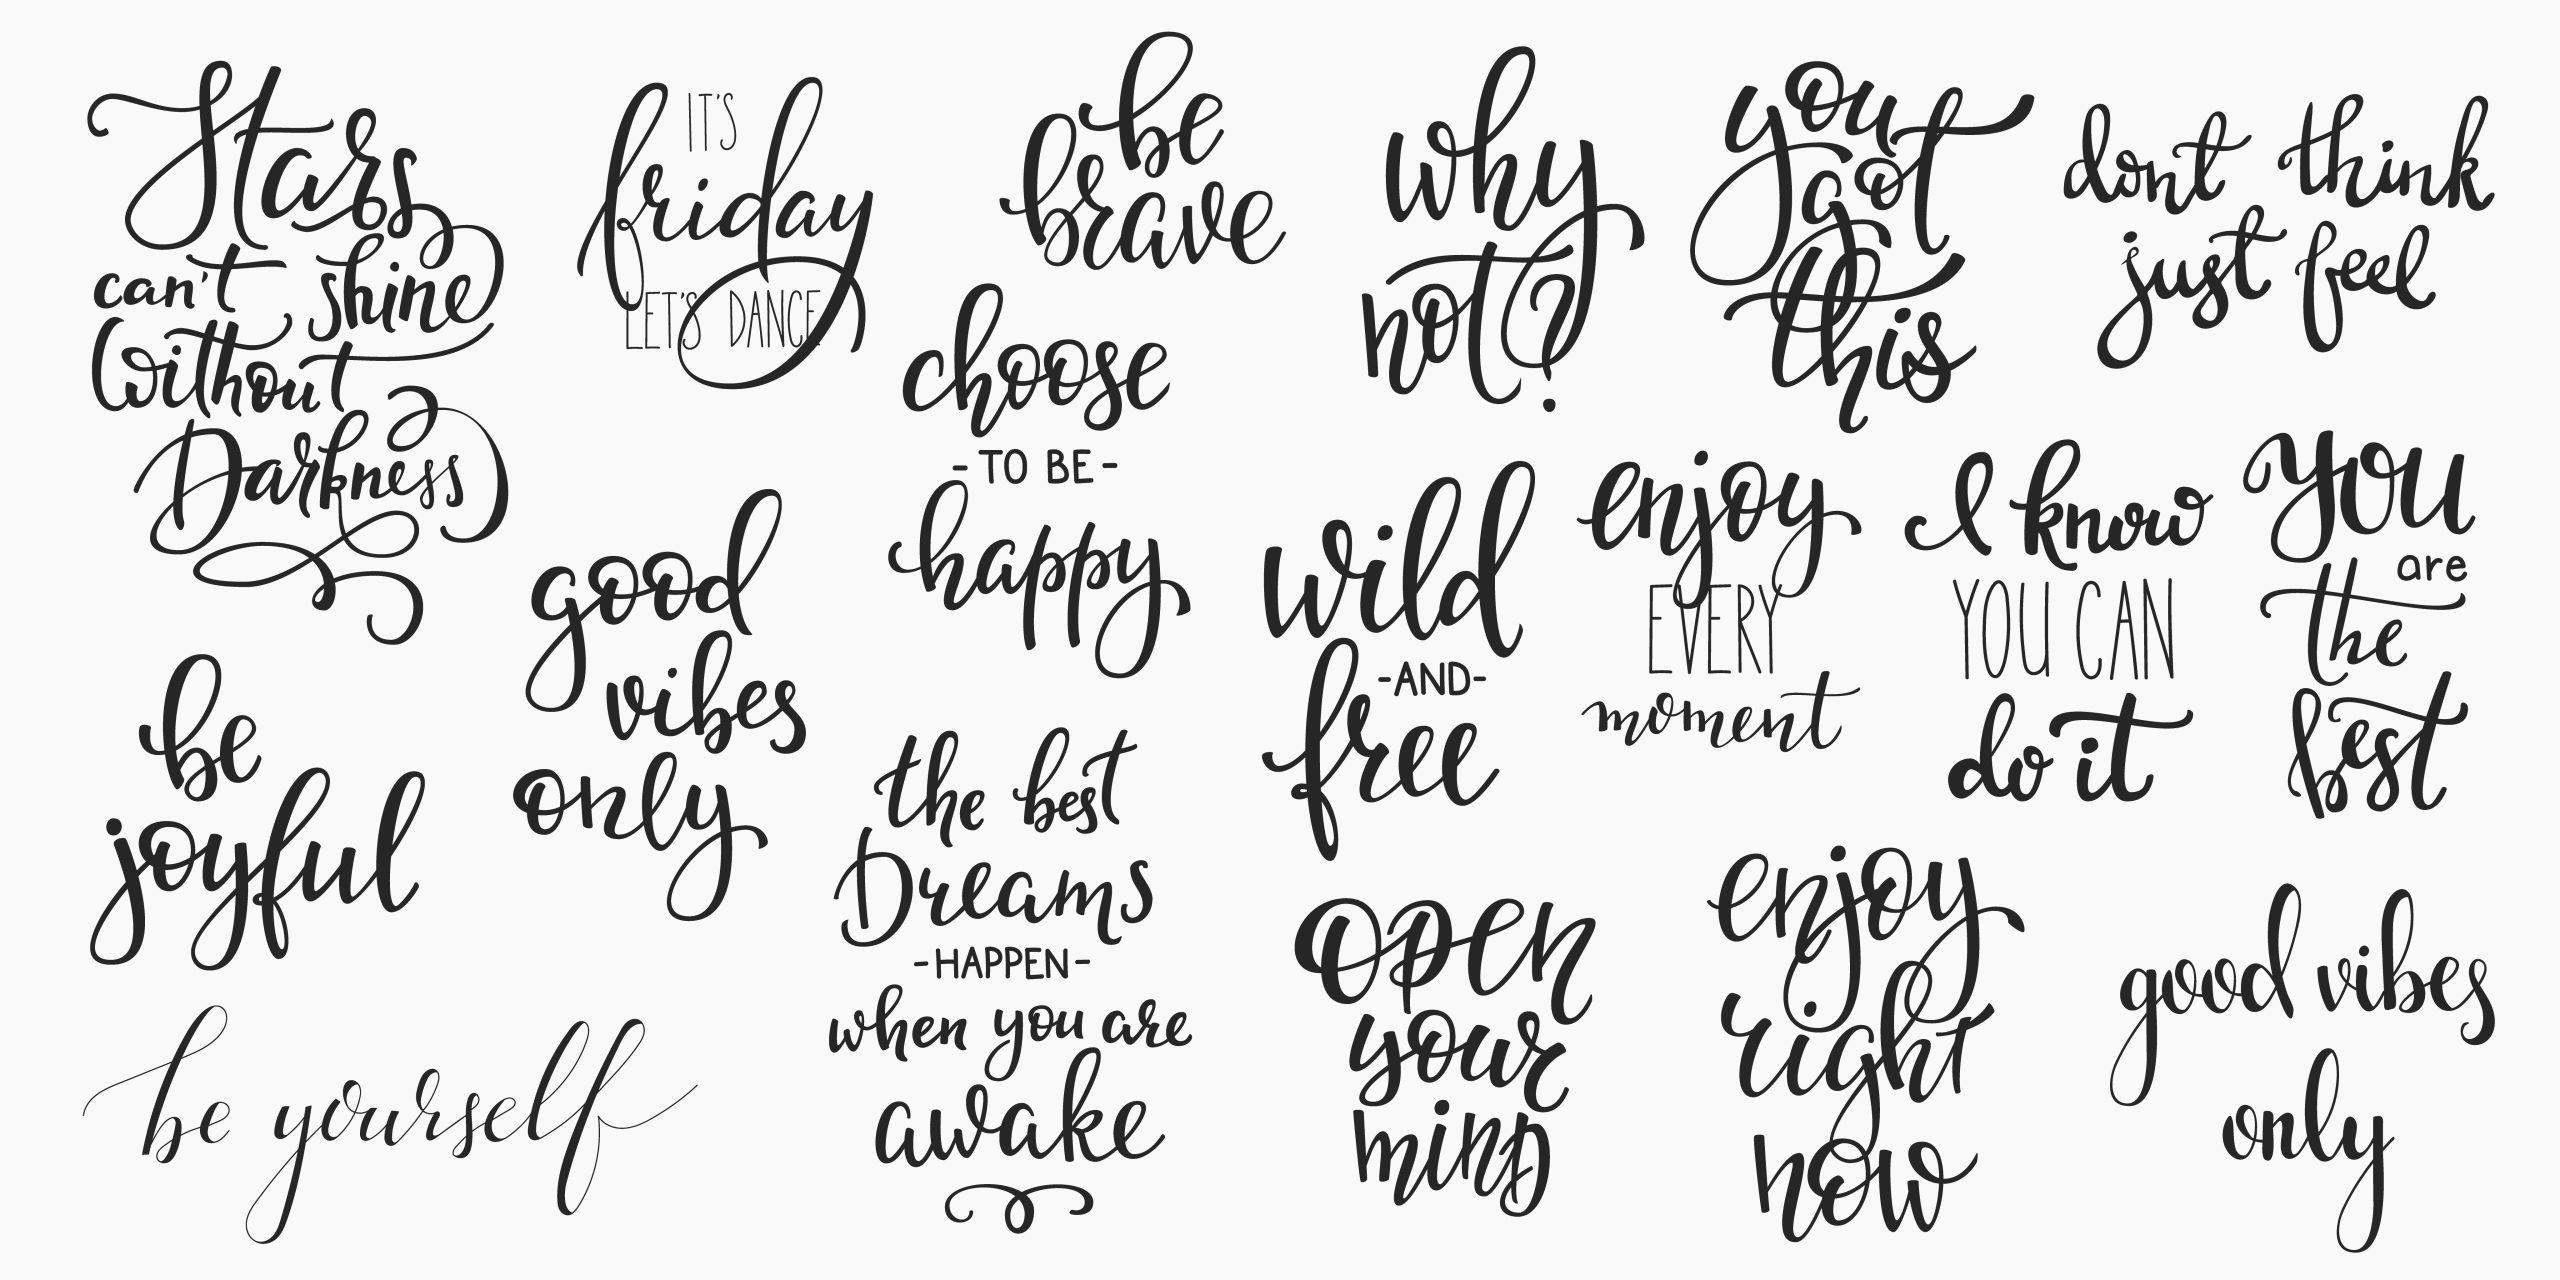 Stars
can't shine
Without
Darkness
IT'S
friday
LET'S DANCE
be
brave
why
not?
you
got
this
dont think
just feel
choose
- TO BE -
happy
good
vibes
only
wild
- AND -
free
enjoy
EVERY
moment
I know
YOU CAN
do it
you
are
the
best
be
joyful
the best
Dreams
- HAPPEN -
when you are
awake
open
your
mind
enjoy
right
now
good vibes
only
be yourself